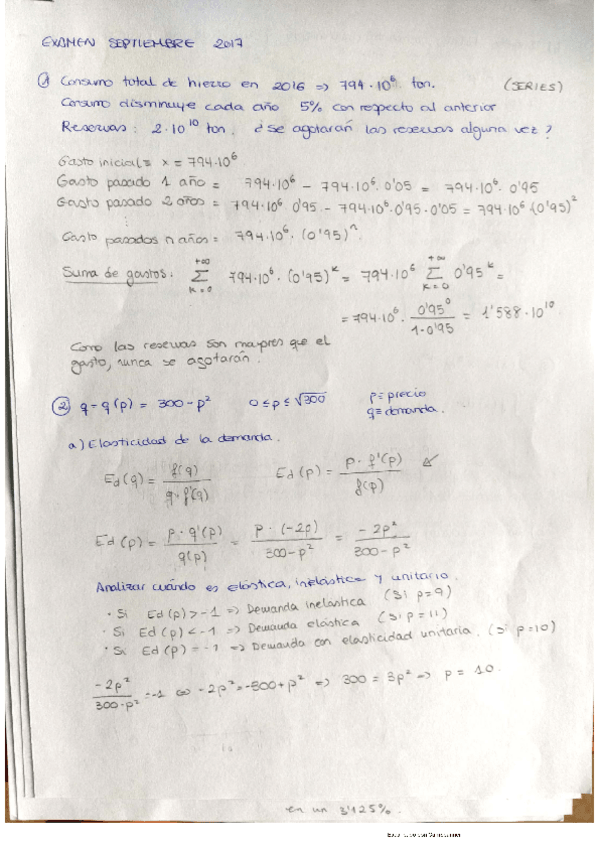 EXAMEN SEPTIEMBRE 2017
① Consumo total de hierro en 2016 => 794·10⁶ ton. (SERIES)
Consumo disminuye cada año 5% con respecto al anterior
Reservas: 2·10¹⁰ ton. ¿Se agotarán las reservas alguna vez?
Gasto inicial = x = 794·10⁶
Gasto pasado 1 año = 794·10⁶ - 794·10⁶·0'05 = 794·10⁶·0'95
Gasto pasado 2 años = 794·10⁶·0'95 - 794·10⁶·0'95·0'05 = 794·10⁶·(0'95)²
⋮
Gasto pasados n años = 794·10⁶·(0'95)ⁿ
Suma de gastos: Σ_{k=0}^{+∞} 794·10⁶·(0'95)^k = 794·10⁶ Σ_{k=0}^{+∞} 0'95^k =
= 794·10⁶· 0'95⁰/(1-0'95) = 1'588·10¹⁰
Como las reservas son mayores que el
gasto, nunca se agotarán.
② q = q(p) = 300-p² 0≤p≤√300 p=precio
q=demanda.
a) Elasticidad de la demanda.
Ed(q) = f(q)/(q·f'(q)) Ed(p) = p·f'(p)/f(p)
Ed(p) = p·q'(p)/q(p) = p·(-2p)/(300-p²) = -2p²/(300-p²)
Analizar cuándo es elástica, inelástica y unitario.
· Si Ed(p) > -1 => Demanda inelastica (Si p=9)
· Si Ed(p) < -1 => Demanda elástica (Si p=11)
· Si Ed(p) = -1 => Demanda con elasticidad unitaria. (Si p=10)
-2p²/(300-p²) = -1 <=> -2p² = -300+p² => 300 = 3p² => p = 10.
en un 3'125%.